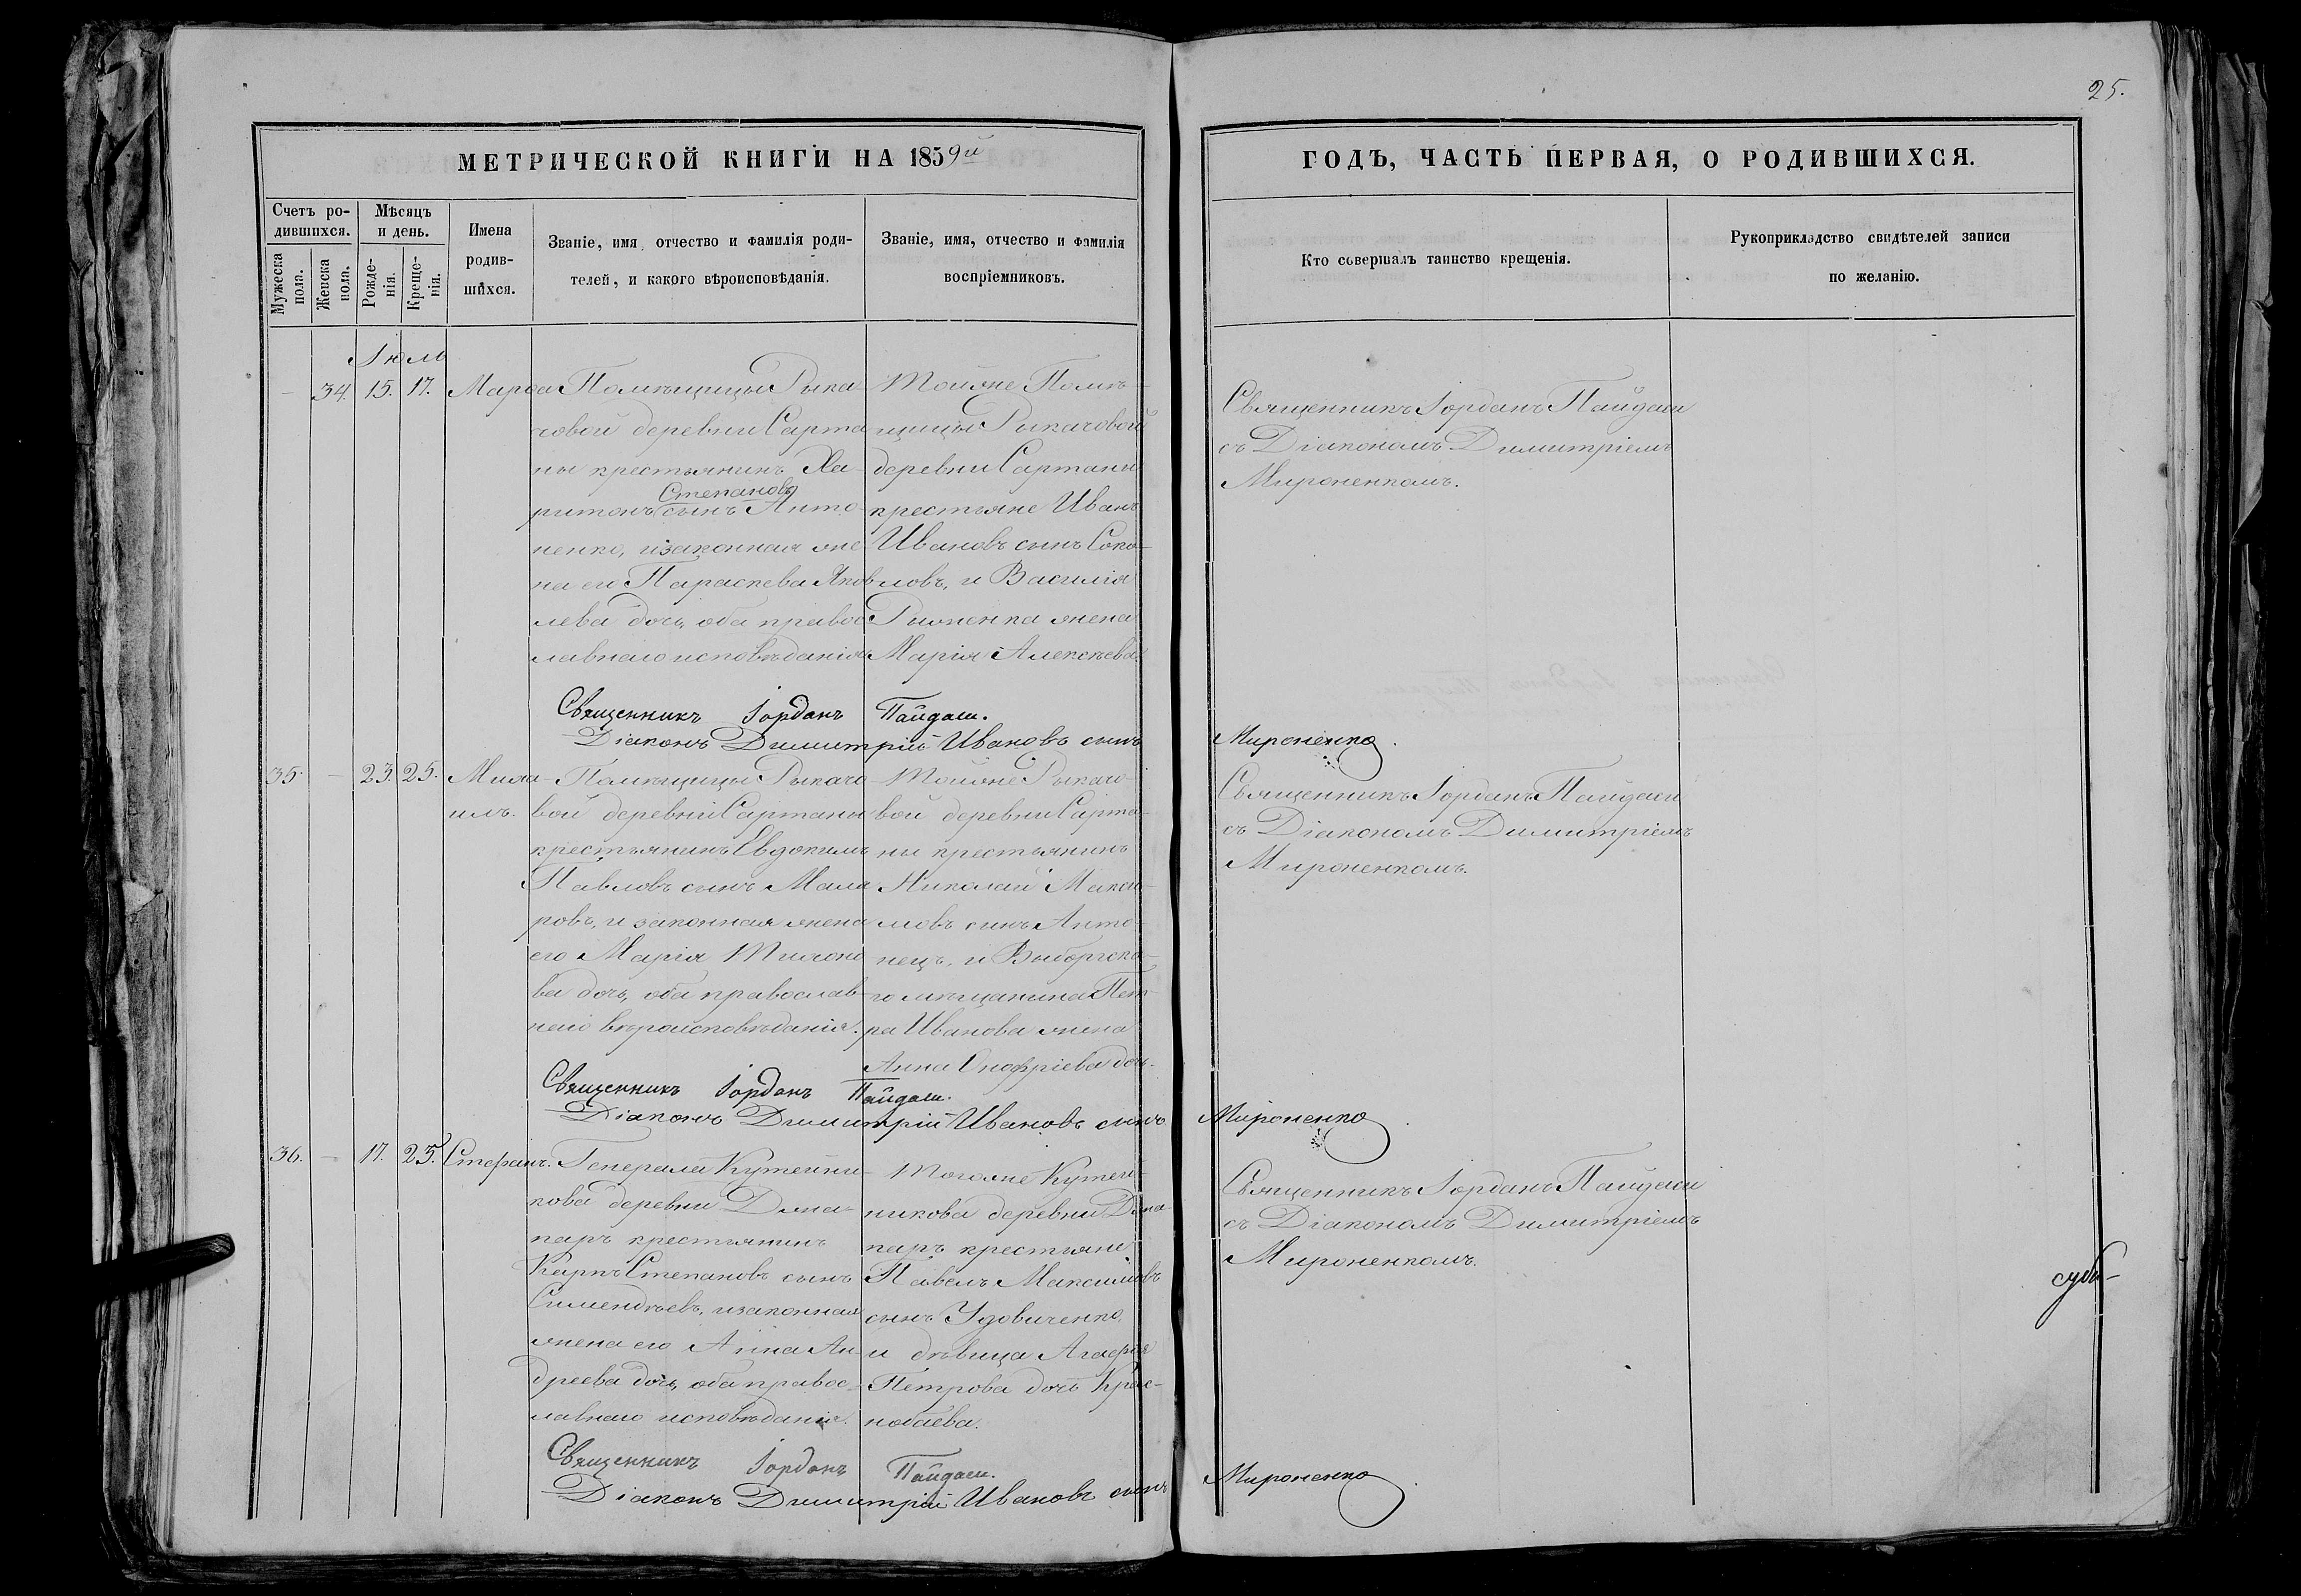 25.
МЕТРИЧЕСКОЙ КНИГИ НА 1859й
ГОДЪ, ЧАСТЬ ПЕРВАЯ, О РОДИВШИХСЯ.
Счетъ ро-
дившихся.
Мужеска
пола.
Женска
пола.
Мѣсяцъ
и день.
Рожде-
нія.
Креще-
нія.
Имена
родив-
шихся.
Званіе, имя, отчество и фамилія роди-
телей, и какого вѣроисповѣданія.
Званіе, имя, отчество и фамилія
воспріемниковъ.
Кто совершалъ таинство крещенія.
Рукоприкладство свидѣтелей записи
по желанію.
Іюль
— 34. 15. 17. Марѳа
Помѣщицы Рыка-
човой деревни Сарта-
ны крестьянинъ Ха-
Степановъ
ритонъ сынъ Анто-
ненко, и законная же-
на его Параскева Яков-
лева дочь, оба правос-
лавнаго исповѣданія
Тойже Помѣ-
щицы Рыкачовой
деревни Сартаны
крестьяне Иванъ
Ивановъ сынъ Соко-
ловъ, и Василія
жена
Марія Алексѣева.
Священникъ Іорданъ Пайдаси
съ Діакономъ Димитріемъ
Мироненкомъ.
Священникъ Іорданъ Пайдаси.
Діаконъ Димитрій Ивановъ сынъ Мироненко.
35. — 23. 25. Миха-
илъ.
Помѣщицы Рыкачо-
вой деревни Сартаны
крестьянинъ Евдокимъ
Павловъ сынъ Мала-
ровъ, и законная жена
его Марія Тихоно-
ва дочь, оба православ-
наго вѣроисповѣданія.
Тойже Рыкачо-
вой деревни Сарта-
ны крестьянинъ
Николай Макси-
мовъ сынъ Анто-
нецъ, и Выборгска-
го мѣщанина Пет-
ра Иванова жена
Анна Онофріева дочь.
Священникъ Іорданъ Пайдаси
съ Діакономъ Димитріемъ
Мироненкомъ.
Священникъ Іорданъ Пайдаси.
Діаконъ Димитрій Ивановъ сынъ Мироненко.
36. — 17. 25. Стефанъ.
Генерала Кутейни-
кова деревни
крестьянинъ
Карпъ Степановъ сынъ
и законная
жена его Анна Ан-
дреева дочь, оба правос-
лавнаго исповѣданія.
Тогоже Кутей-
никова деревни
крестьяне
Павелъ Максимовъ
сынъ Удовиченко,
и дѣвица Агафія
Петрова дочь Крас-
нобаева.
Священникъ Іорданъ Пайдаси
съ Діакономъ Димитріемъ
Мироненкомъ.
Священникъ Іорданъ Пайдаси.
Діаконъ Димитрій Ивановъ сынъ Мироненко.